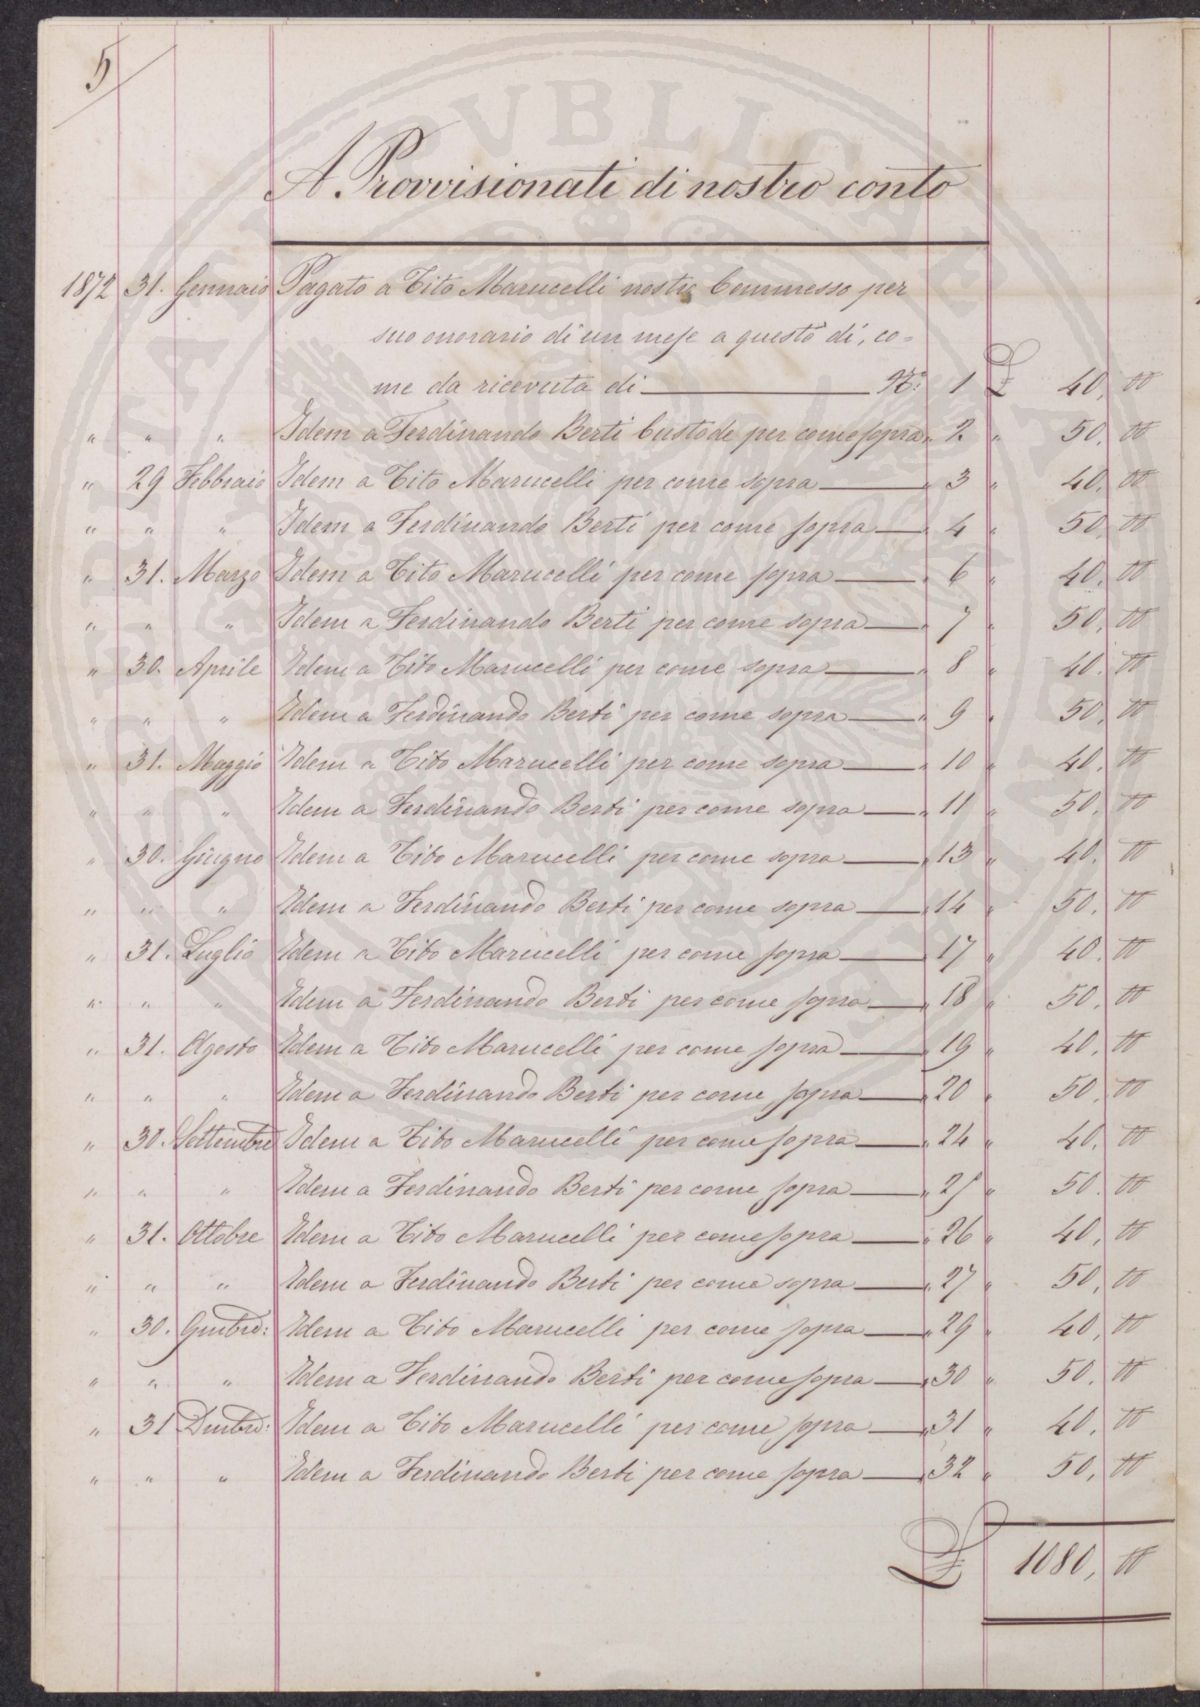 5
A. Provvisionati di nostro conto
1872 31. Gennaio Pagato a Tito Marucelli nostro Commesso per
suo onorario di un mese a questo dì, co=
me da ricevuta di N.º 1 £ 40, "
" " " Idem a Ferdinando Berti Custode per come sopra " 2 " 50, "
" 29 Febbraio Idem a Tito Marucelli per come sopra " 3 " 40, "
" " " Idem a Ferdinando Berti per come sopra " 4 " 50, "
" 31. Marzo Idem a Tito Marucelli per come sopra " 6 " 40, "
" " " Idem a Ferdinando Berti per come sopra " 7 " 50, "
" 30. Aprile Idem a Tito Marucelli per come sopra " 8 " 40, "
" " " Idem a Ferdinando Berti per come sopra " 9 " 50, "
" 31. Maggio Idem a Tito Marucelli per come sopra " 10 " 40, "
" " " Idem a Ferdinando Berti per come sopra " 11 " 50, "
" 30. Giugno Idem a Tito Marucelli per come sopra " 13 " 40, "
" " " Idem a Ferdinando Berti per come sopra " 14 " 50, "
" 31. Luglio Idem a Tito Marucelli per come sopra " 17 " 40, "
" " " Idem a Ferdinando Berti per come sopra " 18 " 50, "
" 31. Agosto Idem a Tito Marucelli per come sopra " 19 " 40, "
" " " Idem a Ferdinando Berti per come sopra " 20 " 50, "
" 30. Settembre Idem a Tito Marucelli per come sopra " 24 " 40, "
" " " Idem a Ferdinando Berti per come sopra " 25 " 50, "
" 31. Ottobre Idem a Tito Marucelli per come sopra " 26 " 40, "
" " " Idem a Ferdinando Berti per come sopra " 27 " 50, "
" 30. 9mbre: Idem a Tito Marucelli per come sopra " 29 " 40, "
" " " Idem a Ferdinando Berti per come sopra " 30 " 50, "
" 31 Dmbre: Idem a Tito Marucelli per come sopra " 31 " 40, "
" " " Idem a Ferdinando Berti per come sopra " 32 " 50, "
£ 1080, "